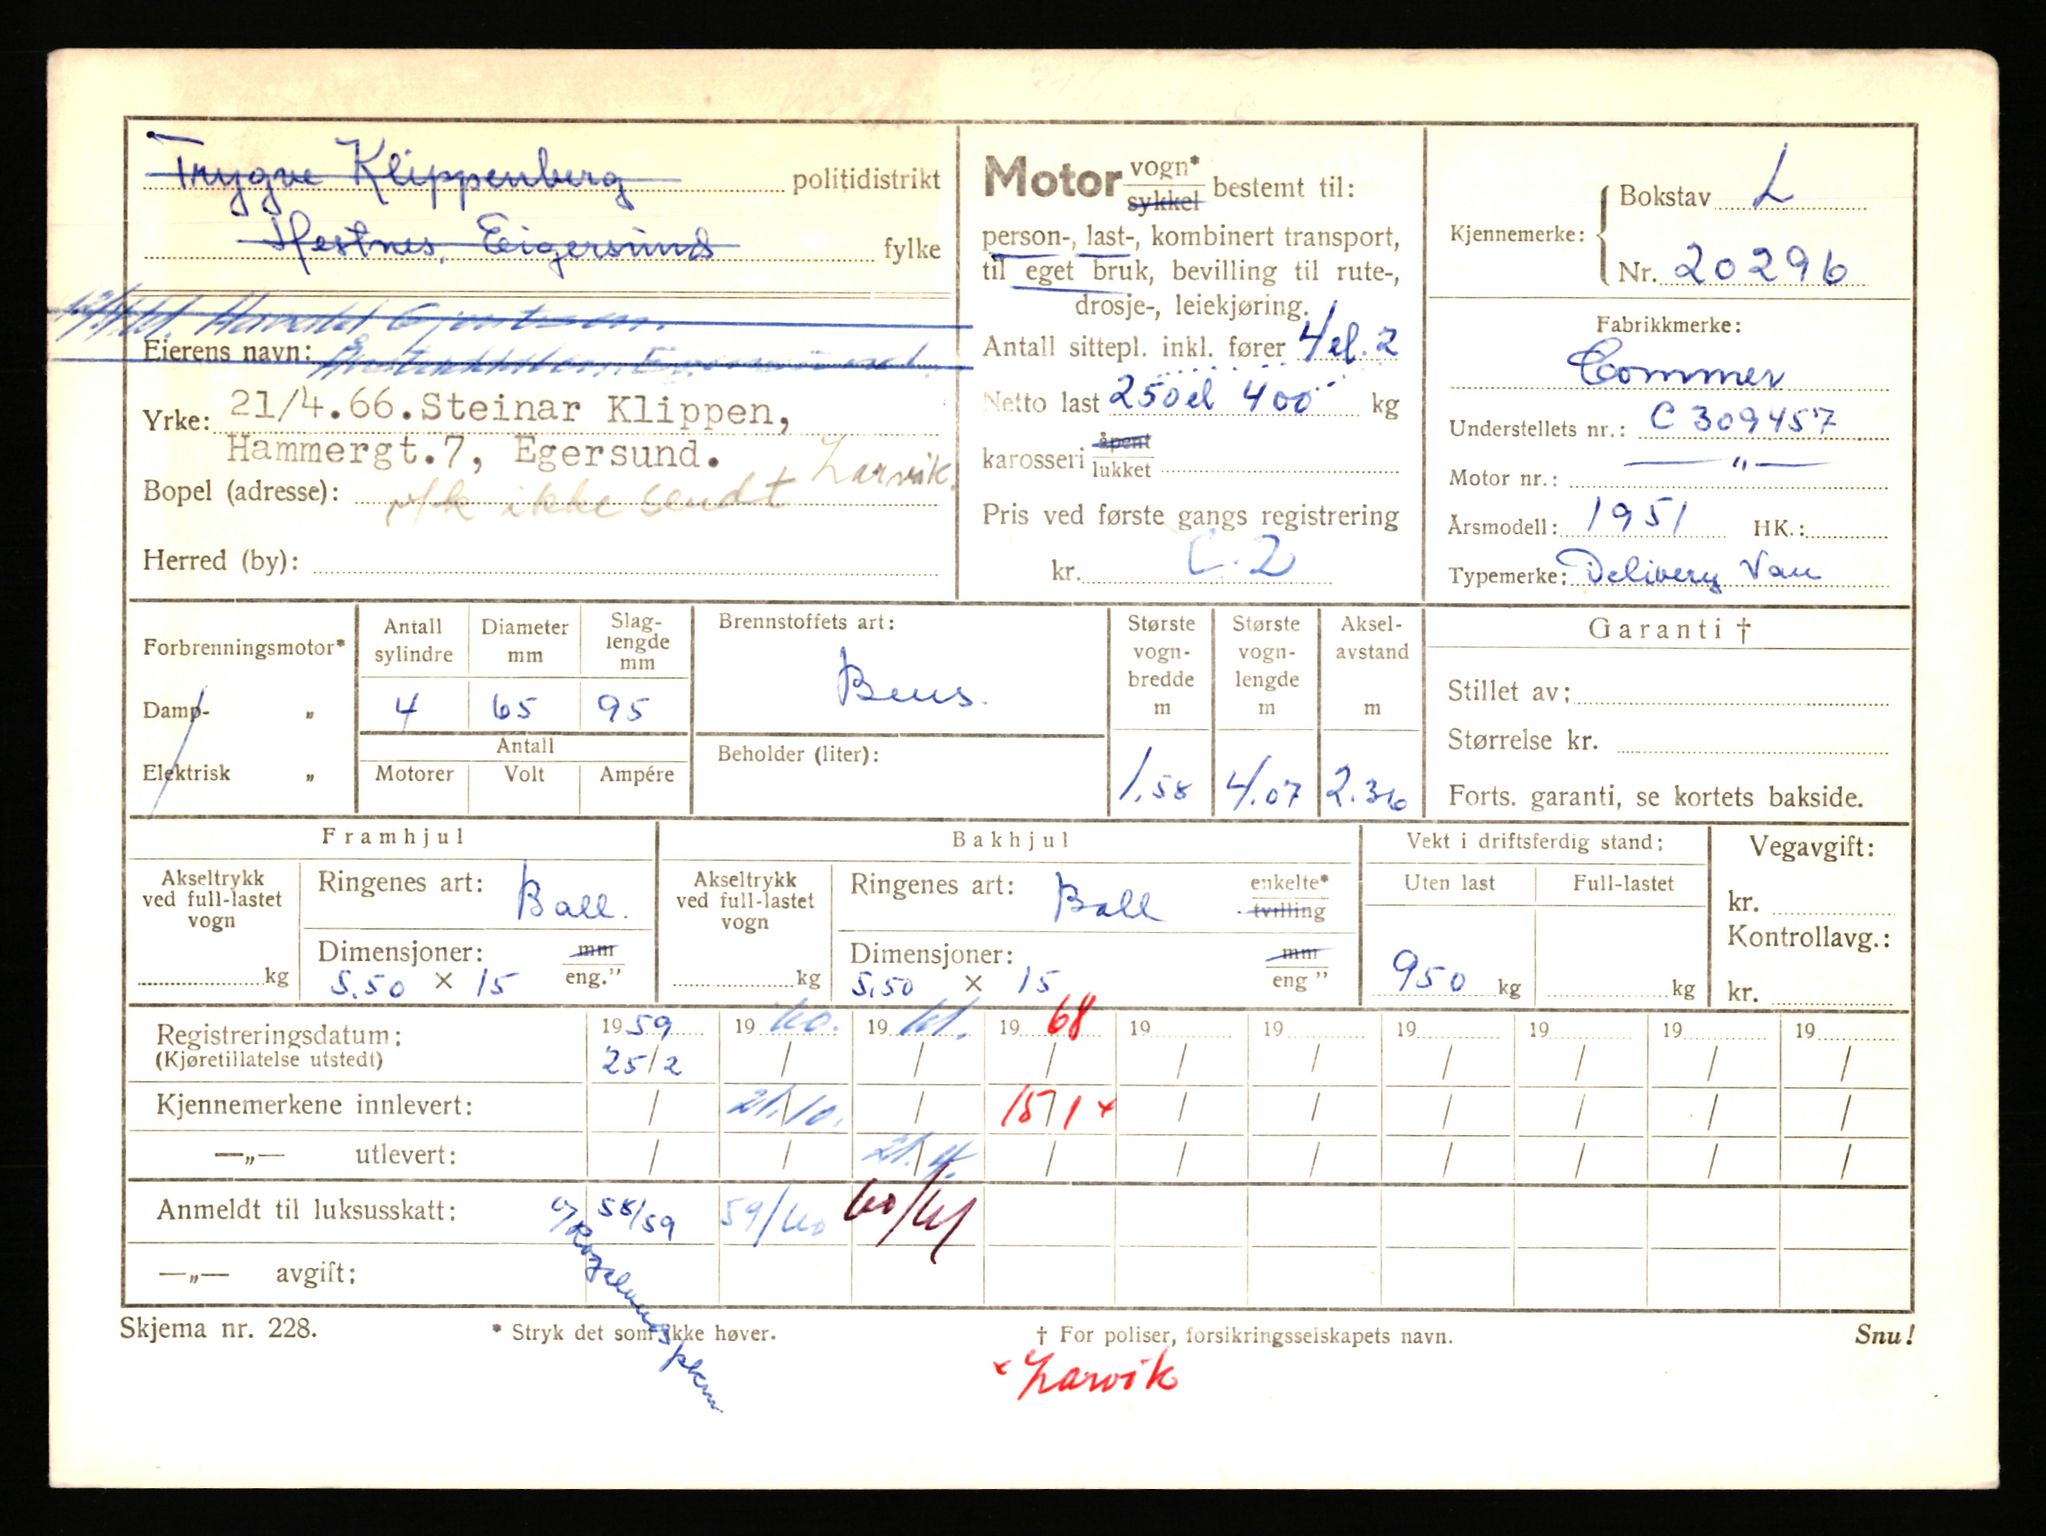 Trygve Klippenberg politidistrikt
Hestnes, Eigersund fylke
Harald
Eierens navn:
Yrke: 21/4.66. Steinar Klippen,
Hammergt.7, Egersund. Larvik.
Bopel (adresse): ikke sendt
Herred (by):
Motor vogn* sykkel bestemt til:
person-, last-, kombinert transport,
til eget bruk, bevilling til rute-,
drosje-, leiekjøring.
Antall sittepl. inkl. fører 4 el. 2
Netto last 250 el 400 kg
karosseri åpent lukket
Pris ved første gangs registrering
kr. C.2
Kjennemerke: Bokstav L
Nr. 20296
Fabrikkmerke:
Commer
Understellets nr.: C 309457
Motor nr.: — " —
Årsmodell: 1951 HK.:
Typemerke: Delivery Van
Forbrenningsmotor*
Damp- "
Elektrisk "
Antall sylindre Diameter mm Slag-lengde mm
4 65 95
Antall
Motorer Volt Ampére
Brennstoffets art:
Bens.
Beholder (liter):
Største vogn-bredde m Største vogn-lengde m Aksel-avstand m
1.58 4.07 2.36
Garanti †
Stillet av:
Størrelse kr.
Forts. garanti, se kortets bakside.
Framhjul
Akseltrykk ved full-lastet vogn
kg
Ringenes art: Ball.
Dimensjoner: mm
5.50 × 15 eng."
Bakhjul
Akseltrykk ved full-lastet vogn
kg
Ringenes art: Ball enkelte* tvilling
Dimensjoner: mm
5.50 × 15 eng "
Vekt i driftsferdig stand:
Uten last Full-lastet
950 kg kg
Vegavgift:
kr.
Kontrollavg.:
kr.
Registreringsdatum: 19 59 19 60. 19 61. 19 68 19 19 19 19 19 19
(Kjøretillatelse utstedt) 25/2 / / / / / / / / /
Kjennemerkene innlevert: / 21/10. / 15/1 × / / / / / /
—„— utlevert: / / 21.4. / / / / / / /
Anmeldt til luksusskatt: 58/59 59/60 60/61
—„— avgift:
Skjema nr. 228. * Stryk det som ikke høver. † For poliser, forsikringsselskapets navn. Snu!
× Larvik